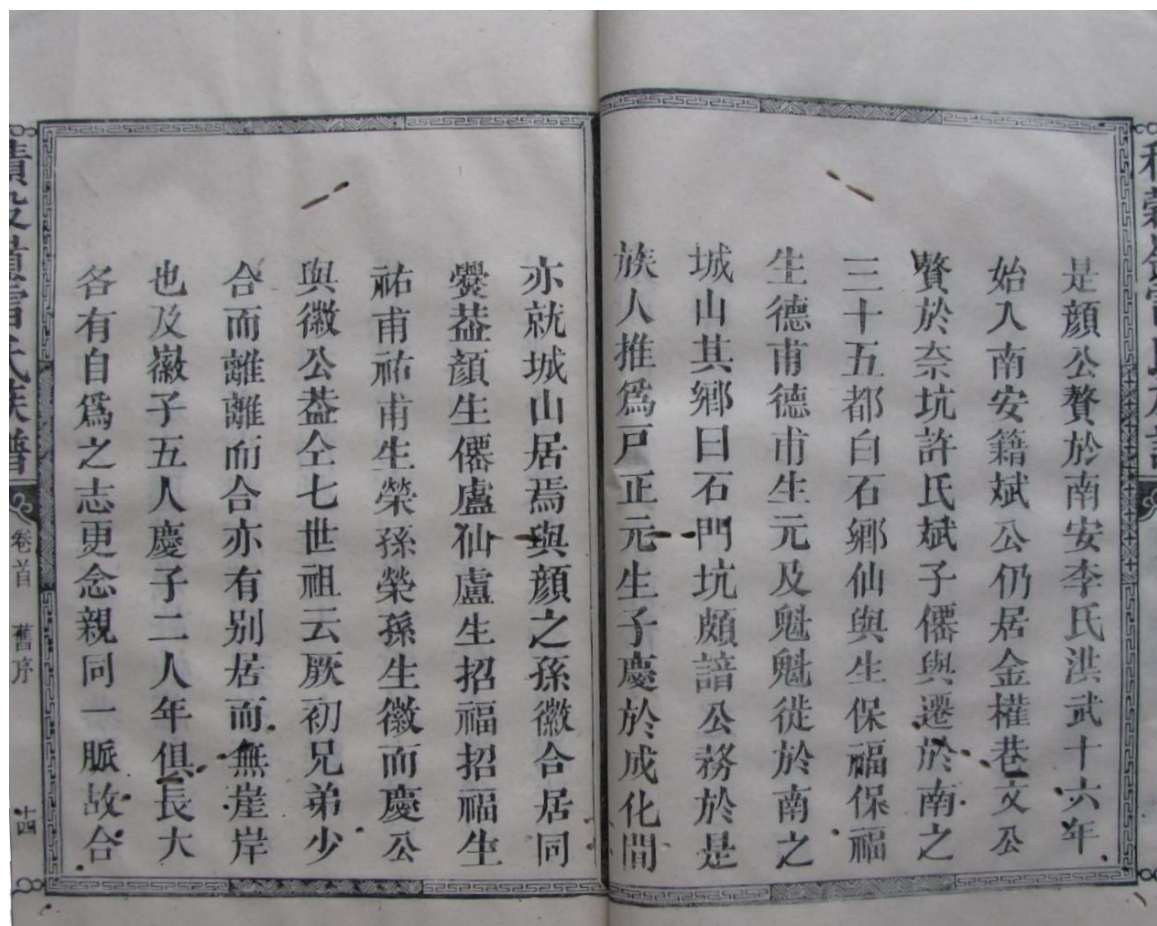 是顏公贅於南安李氏洪武十六年
始入南安籍斌公仍居金權巷文公
贅於奈坑許氏斌子僊與遷於南之
三十五都白石鄉仙與生保福保福
生德甫德甫生元及魁魁從於南之
城山其鄉曰石門坑頗諳公務於是
族人推爲戸正元生子慶於成化間
亦就城山居焉與顏之孫徽合居同
爨葢顏生僊盧仙盧生招福招福生
祐甫祐甫生榮孫榮孫生徽而慶公
與徽公葢仝七世祖云厥初兄弟少
合而離離而合亦有别居而無崖岸
也及嶶子五人慶子二人年俱長大
各有自爲之志更念親同一脈故合
氏族譜
卷首
舊序
十四